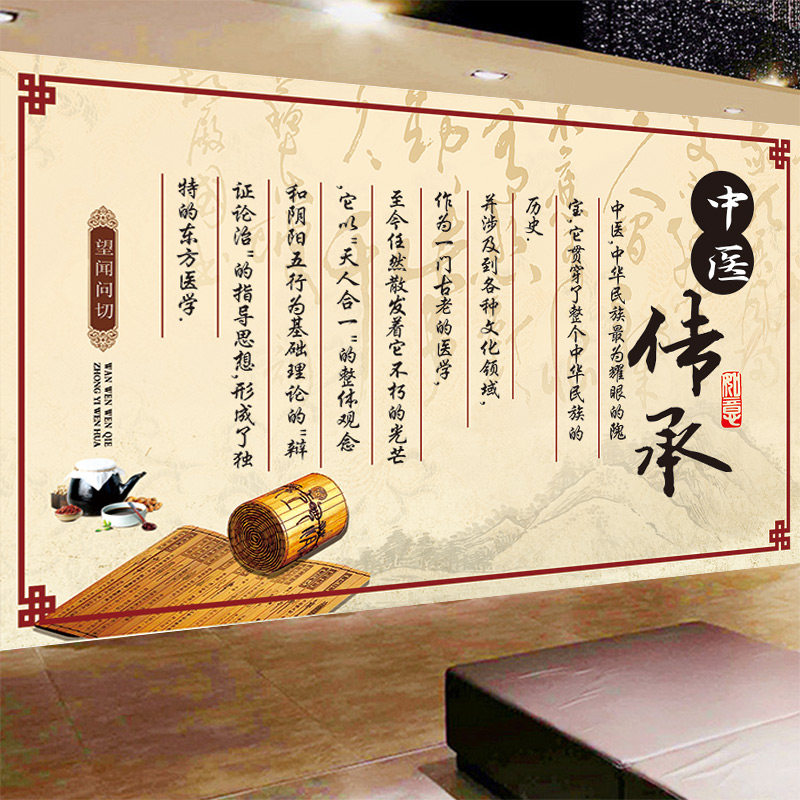 中医
传承
如意
中医,中华民族最为耀眼的隗
宝,它贯穿了整个中华民族的
历史.
并涉及到各种文化领域,
作为一门古老的医学,
至今任然散发着它不朽的光芒
,它以"天人合一"的整体观念
和阴阳五行为基础理论的"辩
证论治"的指导思想,形成了独
特的东方医学.
望闻问切
WAN WEN WEN QIE
ZHONG YI WEN HUA